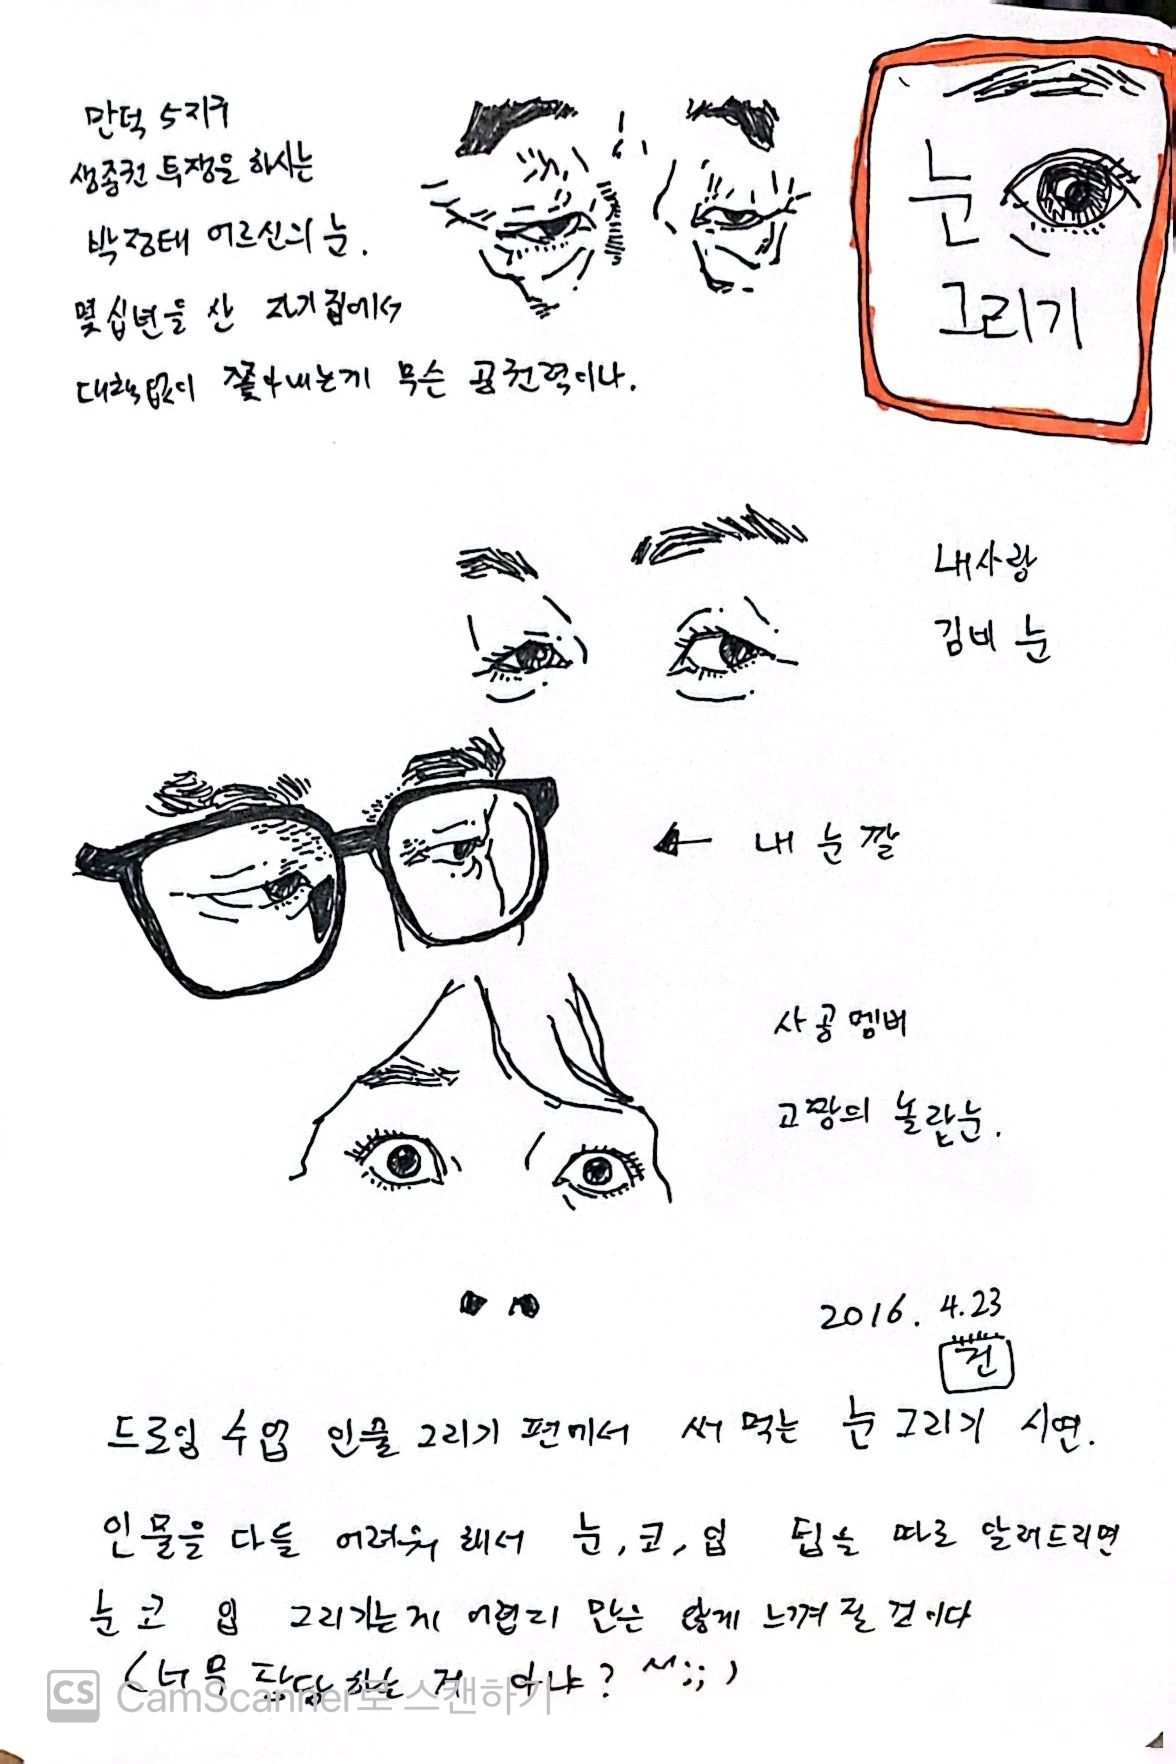 눈
그리기
만덕 5지구
생존권 투쟁을 하시는
박정태 어르신의 눈.
몇십년을 산 자기집에서
대책없이 쫓아내는게 무슨 공권력이냐.
내사랑
김비 눈
← 내 눈깔
사공멤버
고짱의 놀란눈.
2016. 4.23
건
드로잉 수업 인물 그리기 편에서 써 먹는 눈 그리기 시연.
인물을 다들 어려워 해서 눈, 코, 입 팁을 따로 알려드리면
눈 코 입 그리기는게 어렵지 만은 않게 느껴 질 것이다
(너무 당당하는 거 아냐? ^^;;)
CS CamScanner로 스캔하기